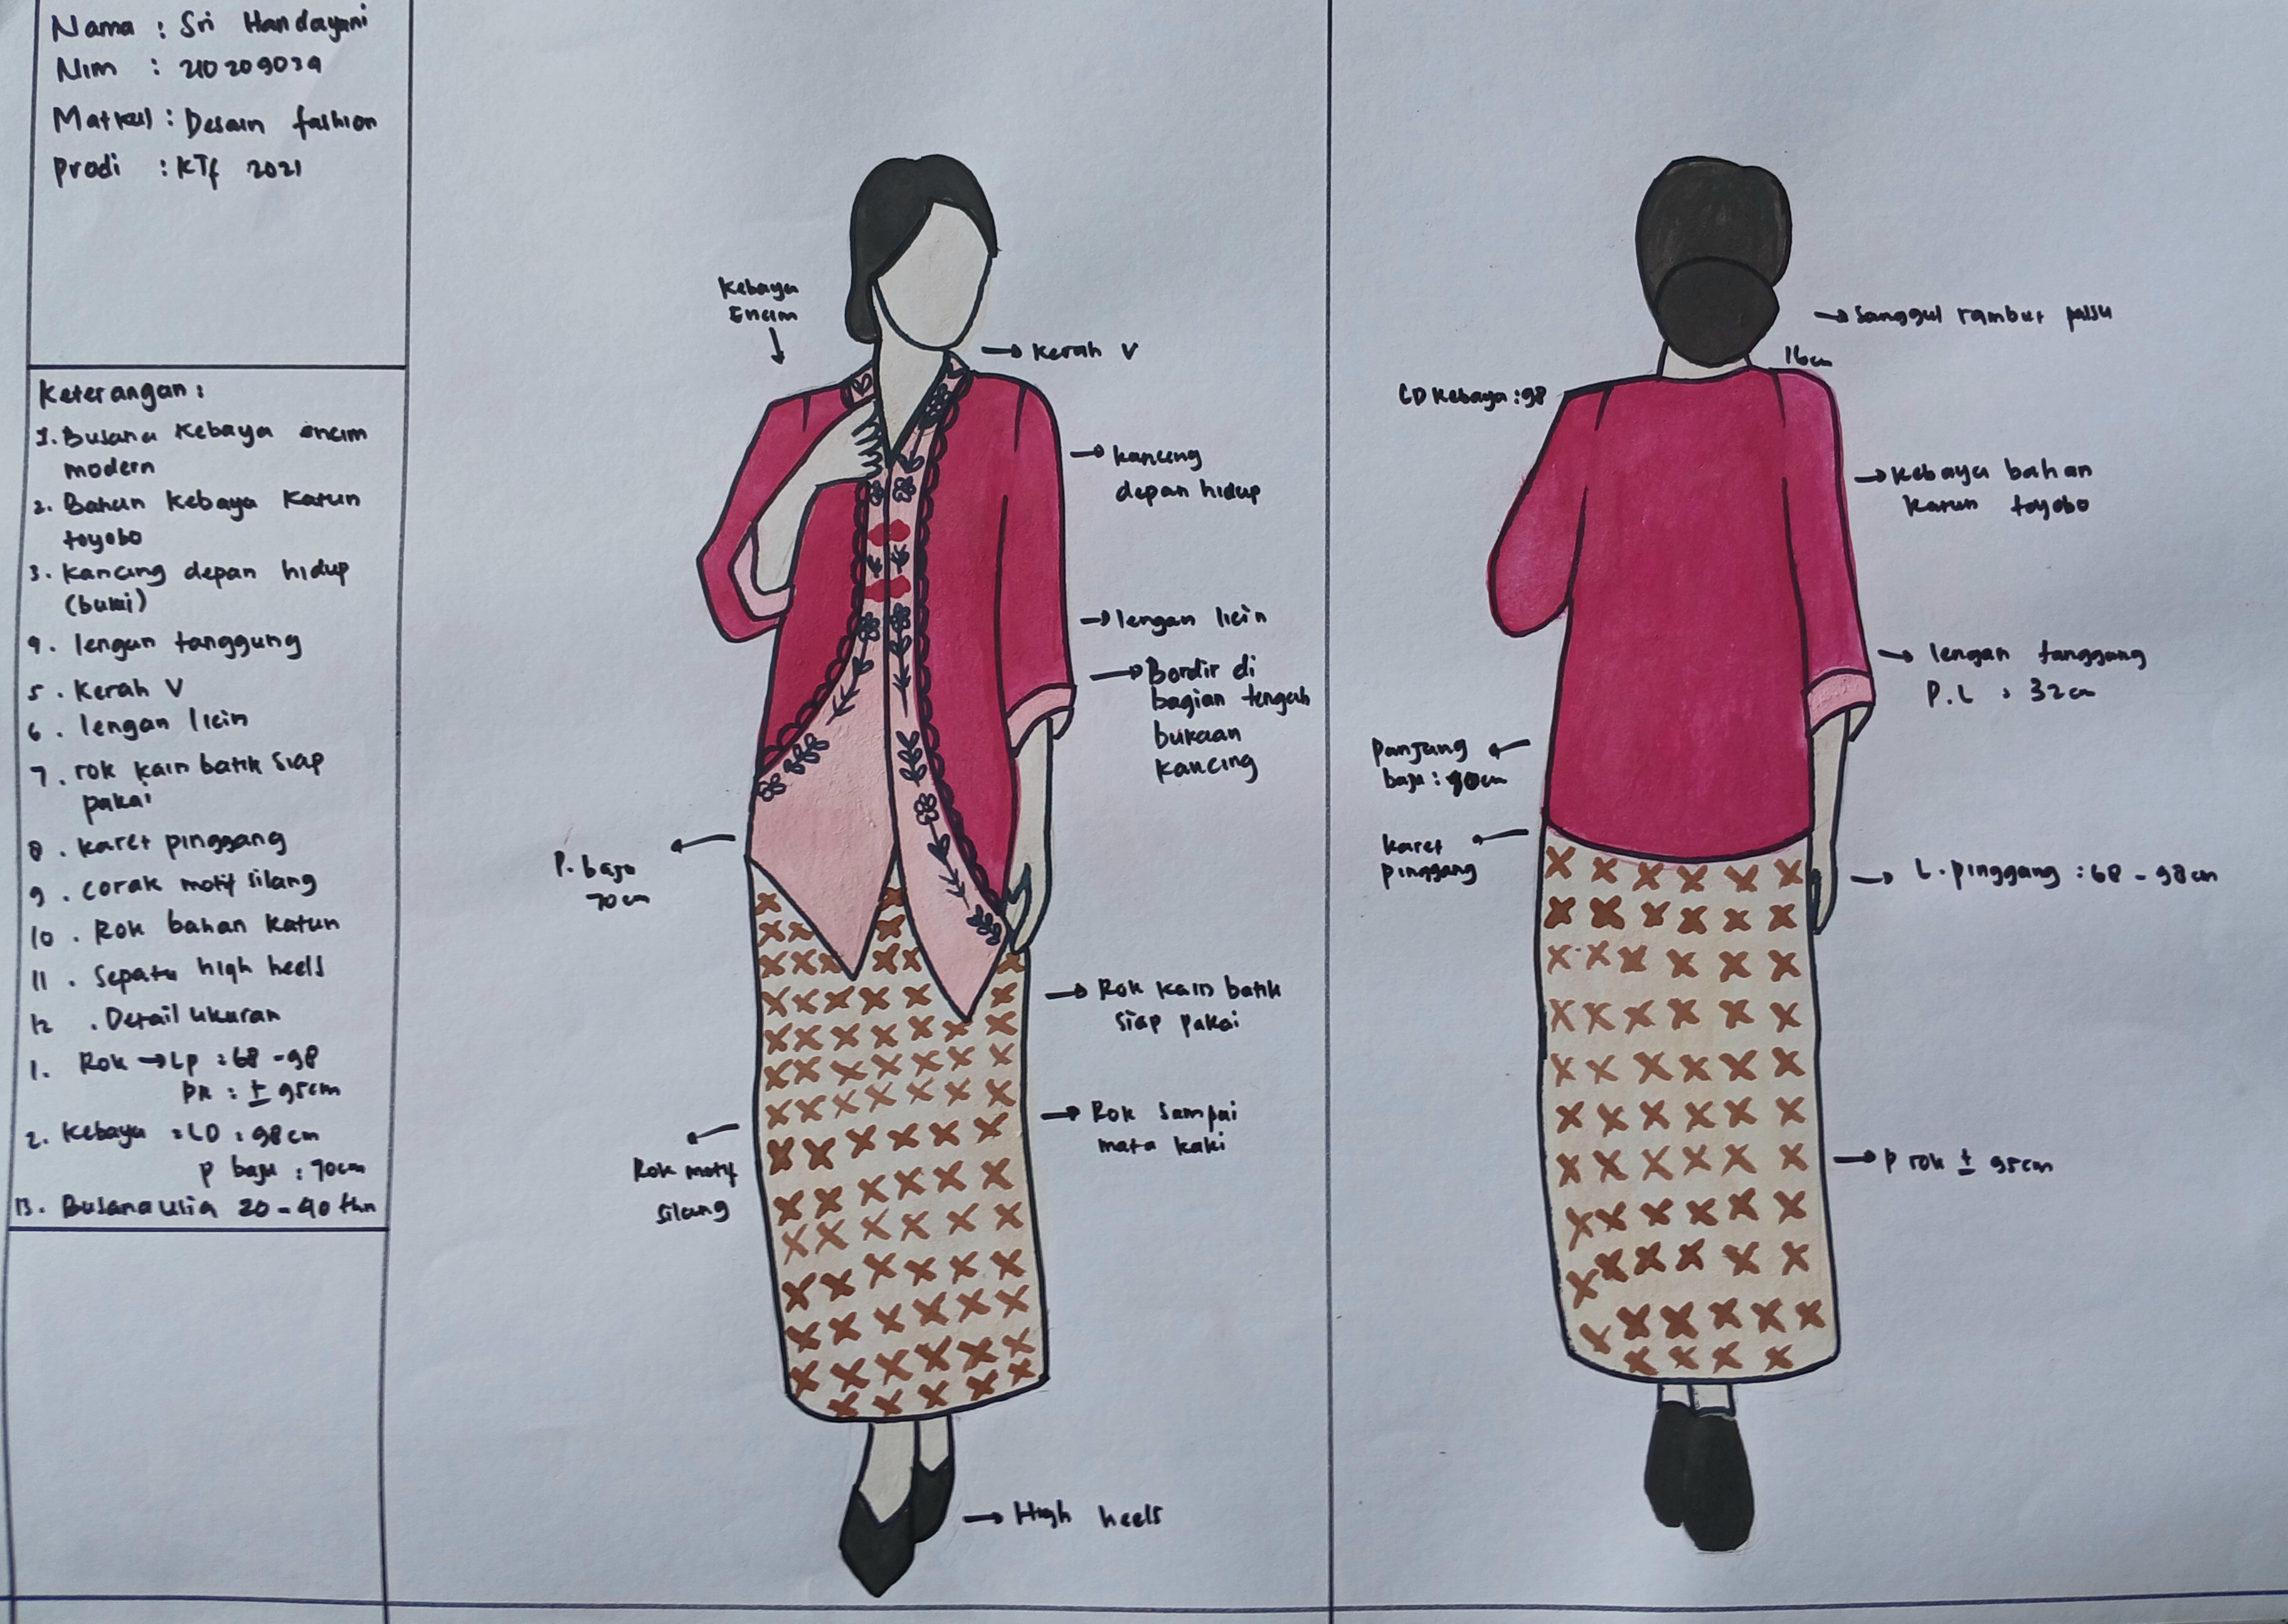 Nama : Sri Handayani
Nim : 210209039
Matkul : Desain fashion
Prodi : KTf 2021
Keterangan :
1. Busana Kebaya encim
modern
2. Bahan Kebaya Katun
toyobo
3. Kancing depan hidup
(buki)
4. lengan tanggung
5. Kerah V
6. lengan licin
7. rok kain batik siap
pakai
8. karet pinggang
9. corak motif silang
10. Rok bahan katun
11. Sepatu high heels
12. Detail ukuran
1. Rok → Lp : 68 - 98
PR : ± 95cm
2. Kebaya : LD : 98 cm
P baju : 70cm
13. Busana usia 20 - 40 thn
Kebaya
Encim
→ Kerah V
→ kancing
depan hidup
→ lengan licin
→ Bordir di
bagian tengah
bukaan
kancing
P. baju
70cm
→ Rok kain batik
siap pakai
→ Rok sampai
mata kaki
Rok motif
silang
→ High heels
→ Sanggul rambut palsu
16cm
LD Kebaya : 98
→ Kebaya bahan
katun toyobo
→ lengan tanggung
P.L : 32cm
Panjang
baju : 70cm
karet
pinggang
→ L. pinggang : 68 - 98cm
→ P rok ± 95cm